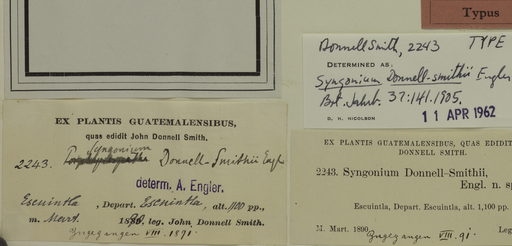 Typus
Donnell Smith, 2243 TYPE
DETERMINED AS
Syngonium Donnell-smithii Engler
Bot. Jahrb. 37:141. 1905.
D. H. NICOLSON
11 APR 1962
EX PLANTIS GUATEMALENSIBUS,
quas edidit John Donnell Smith.
Syngonium
2243. Donnell-Smithii Engl.
determ. A. Engler.
Escuintla, Depart. Escuintla, alt. 1100 pp.,
m. Mart. 1890, leg. John Donnell Smith.
Zugegangen VIII. 1891.
EX PLANTIS GUATEMALENSIBUS, QUAS EDIDIT
DONNELL SMITH.
2243. Syngonium Donnell-Smithii,
Engl. n. sp
Escuintla, Depart. Escuintla, alt. 1,100 pp.
M. Mart. 1890 Leg
Zugegangen VIII. 91.